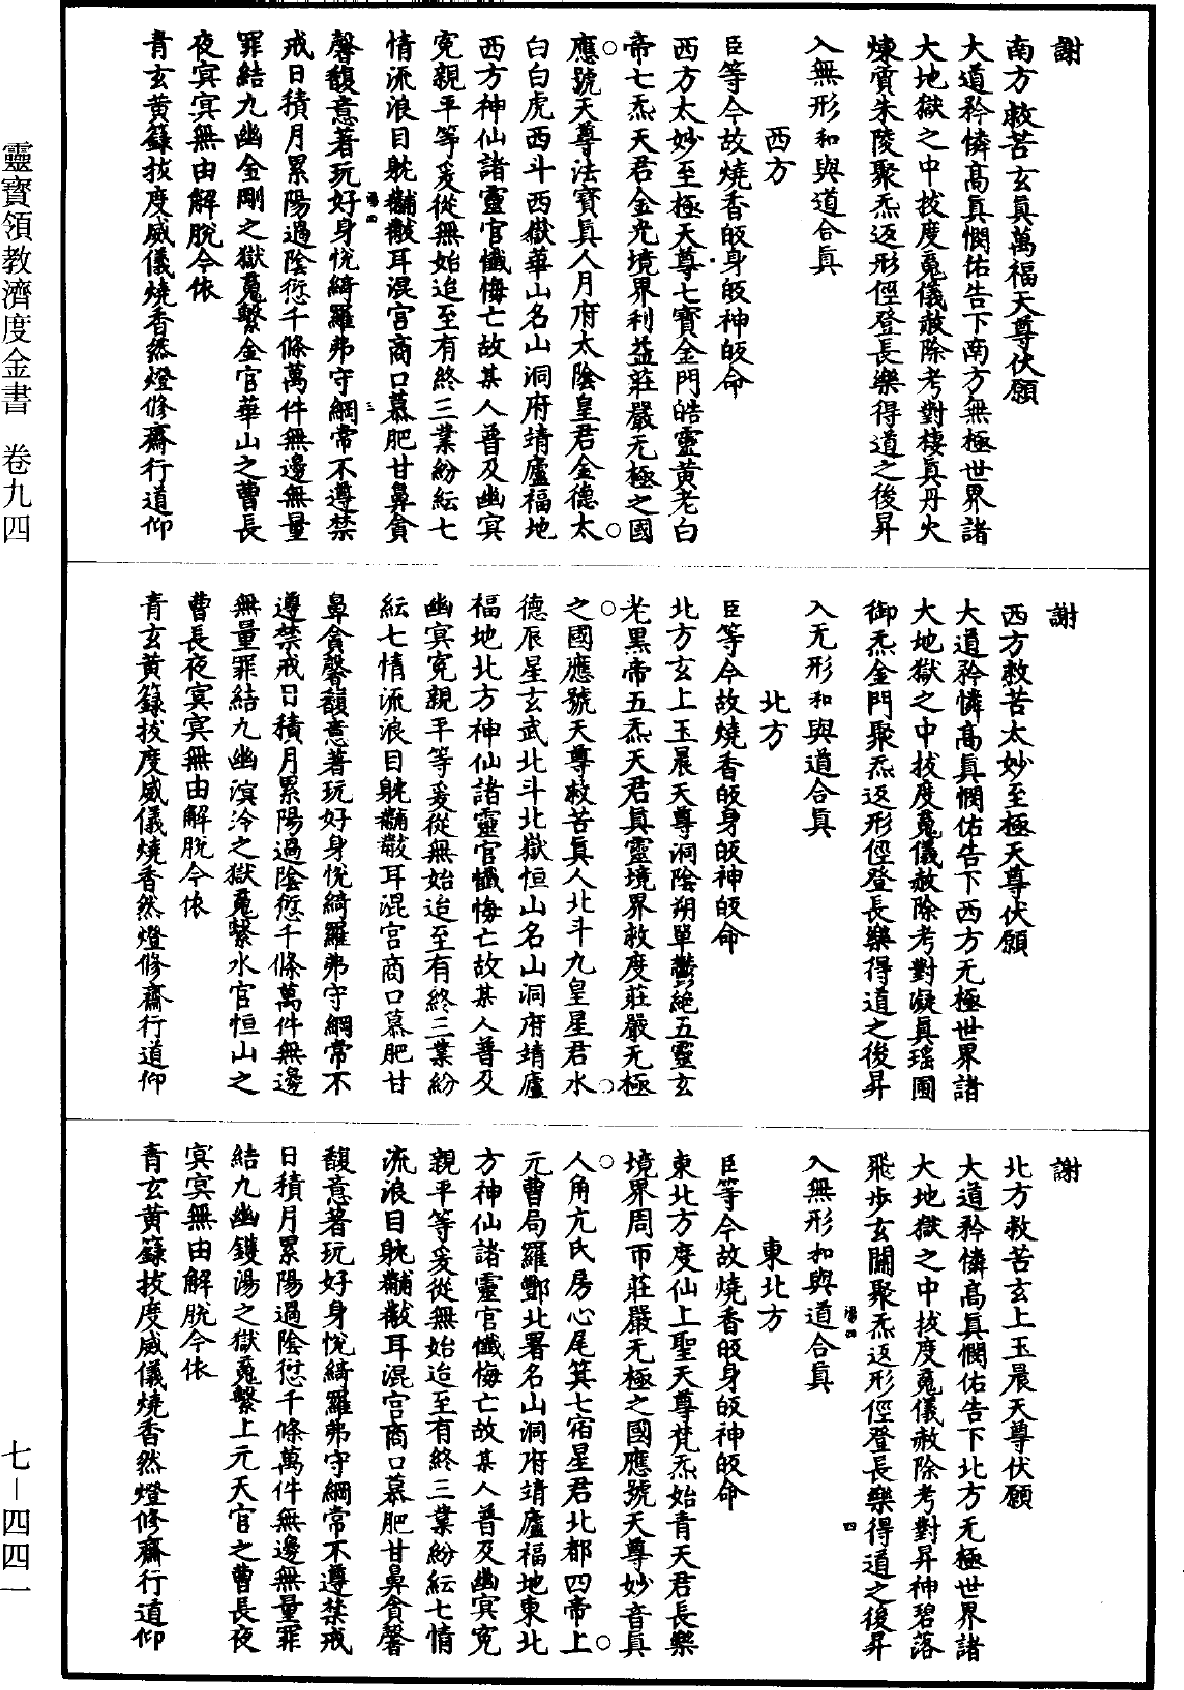 謝
南方救苦玄真萬福天尊伏願
大道矜憐高真憫佑告下南方無極世界諸
大地獄之中拔度䰟儀赦除考對棲真丹火
煉質朱陵聚炁返形俓登長樂得道之後昇
入無形和與道合真
西方
臣等今故燒香皈身皈神皈命
西方太妙至極天尊七寶金門皓靈黃老白
帝七炁天君金光境界利益莊嚴无極之國
應號天尊法寶真人月府太陰皇君金德太
白白虎西斗西嶽華山名山洞府靖廬福地
西方神仙諸靈官懺悔亡故某人普及幽冥
寃親平等爰從無始迨至有終三業紛紜七
情流浪目躭黼黻耳混宮商口慕肥甘鼻貪
湯四
三
馨馥意著玩好身悅綺羅弗守綱常不遵禁
戒日積月累陽過陰愆千條萬件無邊無量
罪結九幽金剛之獄䰟繫金官華山之曹長
夜冥冥無由解脫今依
青玄黃籙拔度威儀燒香然燈修齋行道仰
謝
西方救苦太妙至極天尊伏願
大道矜憐高真憫佑告下西方无極世界諸
大地獄之中拔度䰟儀赦除考對凝真瑤圃
御炁金門聚炁返形俓登長樂得道之後昇
入无形和與道合真
北方
臣等今故燒香皈身皈神皈命
北方玄上玉晨天尊洞陰朔單鬱絕五靈玄
老黑帝五炁天君真靈境界救度莊嚴无極
之國應號天尊救苦真人北斗九皇星君水
德辰星玄武北斗北嶽恒山名山洞府靖廬
福地北方神仙諸靈官懺悔亡故某人普及
幽冥寃親平等爰從無始迨至有終三業紛
紜七情流浪目躭黼黻耳混宮商口慕肥甘
鼻貪馨馥意著玩好身悅綺羅弗守綱常不
遵禁戒日積月累陽過陰愆千條萬件無邊
無量罪結九幽溟泠之獄䰟繫水官恒山之
曹長夜冥冥無由解脫今依
青玄黃籙拔度威儀燒香然燈修齋行道仰
謝
北方救苦玄上玉晨天尊伏願
大道矜憐高真憫佑告下北方无極世界諸
大地獄之中拔度䰟儀赦除考對昇神碧落
飛步玄關聚炁返形俓登長樂得道之後昇
湯四
四
入無形和與道合真
東北方
臣等今故燒香皈身皈神皈命
東北方度仙上聖天尊梵炁始青天君長樂
境界周帀莊嚴无極之國應號天尊妙音真
人角亢氐房心尾箕七宿星君北都四帝上
元曹局羅酆北署名山洞府靖廬福地東北
方神仙諸靈官懺悔亡故某人普及幽冥寃
親平等爰從無始迨至有終三業紛紜七情
流浪目躭黼黻耳混宮商口慕肥甘鼻貪馨
馥意著玩好身悅綺羅弗守綱常不遵禁戒
日積月累陽過陰愆千條萬件無邊無量罪
結九幽鑊湯之獄䰟繫上元天官之曹長夜
冥冥無由解脫今依
青玄黃籙拔度威儀燒香然燈修齋行道仰
靈寶領教濟度金書 卷九四
七—四四一